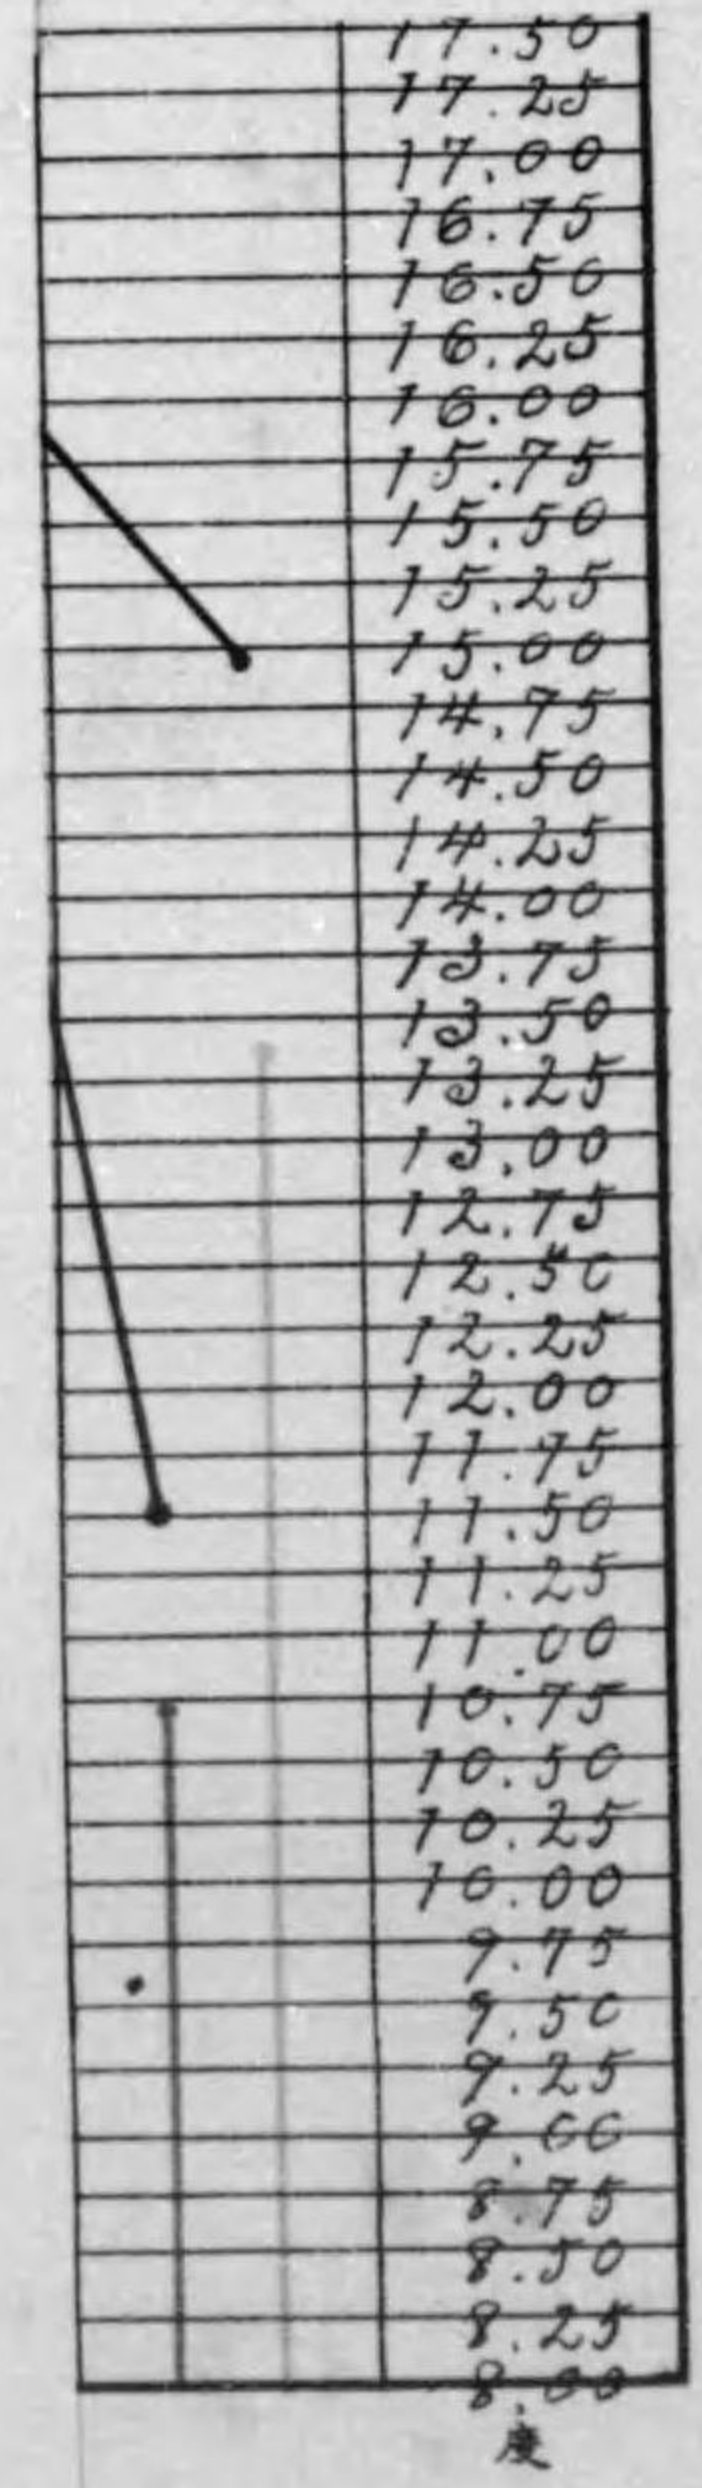 17.50
17.25
17.00
16.75
16.50
16.25
16.00
15.75
15.50
15.25
15.00
14.75
14.50
14.25
14.00
13.75
13.50
13.25
13.00
12.75
12.50
12.25
12.00
11.75
11.50
11.25
11.00
10.75
10.50
10.25
10.00
9.75
9.50
9.25
9.00
8.75
8.50
8.25
8.00
度